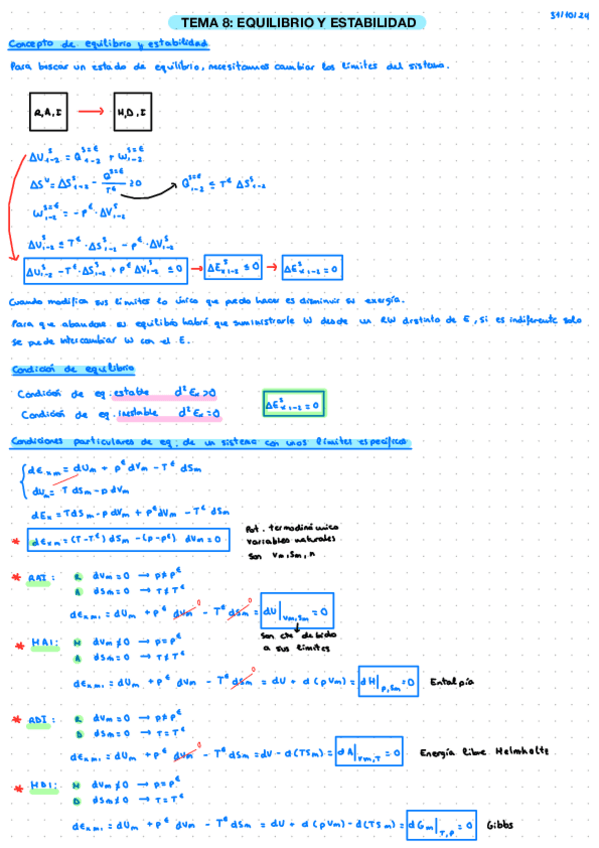 TEMA 8: EQUILIBRIO Y ESTABILIDAD
31/10/24
Concepto de equilibrio y estabilidad
Para buscar un estado de equilibrio, necesitamos cambiar los límites del sistema.
R,A,I → M,D,I
ΔU¹⁻²ˢ = Q¹⁻²ˢ⇌ᵋ + W¹⁻²ˢ⇌ᵋ
ΔSᵘ = ΔS¹⁻²ˢ - Q¹⁻²ˢ⇌ᵋ/Tᵋ ≥ 0 → Q¹⁻²ˢ⇌ᵋ ≤ Tᵋ ΔS¹⁻²ˢ
W¹⁻²ˢ⇌ᵋ = -pᵋ · ΔV¹⁻²ˢ
ΔU¹⁻²ˢ ≤ Tᵋ · ΔS¹⁻²ˢ - pᵋ · ΔV¹⁻²ˢ
ΔU¹⁻²ˢ - Tᵋ · ΔS¹⁻²ˢ + pᵋ ΔV¹⁻²ˢ ≤ 0 → ΔEx,1-2ˢ ≤ 0 → ΔEx,1-2ˢ = 0
Cuando modifica sus límites lo único que puede hacer es disminuir su exergía.
Para que abandone su equilibrio habrá que suministrarle W desde un RW distinto de E, si es indiferente solo
se puede intercambiar W con el E.
Condición de equilibrio
Condición de eq. estable d²Ex>0
Condición de eq. inestable d²Ex=0
ΔEx,1-2ˢ = 0
Condiciones particulares de eq. de un sistema con unos límites específicos
dExm = dUm + pᵋ dVm - Tᵋ dSm
dUm = T dSm - p dVm
dEx = TdSm - p dVm + pᵋ dVm - Tᵋ dSm
* dExm = (T-Tᵋ) dSm - (p-pᵋ) dVm = 0
Pot. termodinámico
variables naturales
son Vm, Sm, n
* RAI: R dVm = 0 → p≠pᵋ
A dSm = 0 → T≠Tᵋ
dExm, = dUm + pᵋ dVm⁰ - Tᵋ dSm⁰ = dU|Vm,Sm = 0
son cte debido
a sus límites
* MAI: M dVm ≠ 0 → p=pᵋ
A dSm = 0 → T≠Tᵋ
dExm, = dUm + pᵋ dVm - Tᵋ dSm⁰ = dU + d(pVm) = dH|p,Sm = 0 Entalpía
* RDI: R dVm = 0 → p≠pᵋ
D dSm ≠ 0 → T=Tᵋ
dExm, = dUm + pᵋ dVm⁰ - Tᵋ dSm = dU - d(TSm) = dA|Vm,T = 0 Energía libre Helmholtz
* MDI: M dVm ≠ 0 → p=pᵋ
D dSm ≠ 0 → T=Tᵋ
dExm, = dUm + pᵋ dVm - Tᵋ dSm = dU + d(pVm) - d(TSm) = dGm|T,p = 0 Gibbs